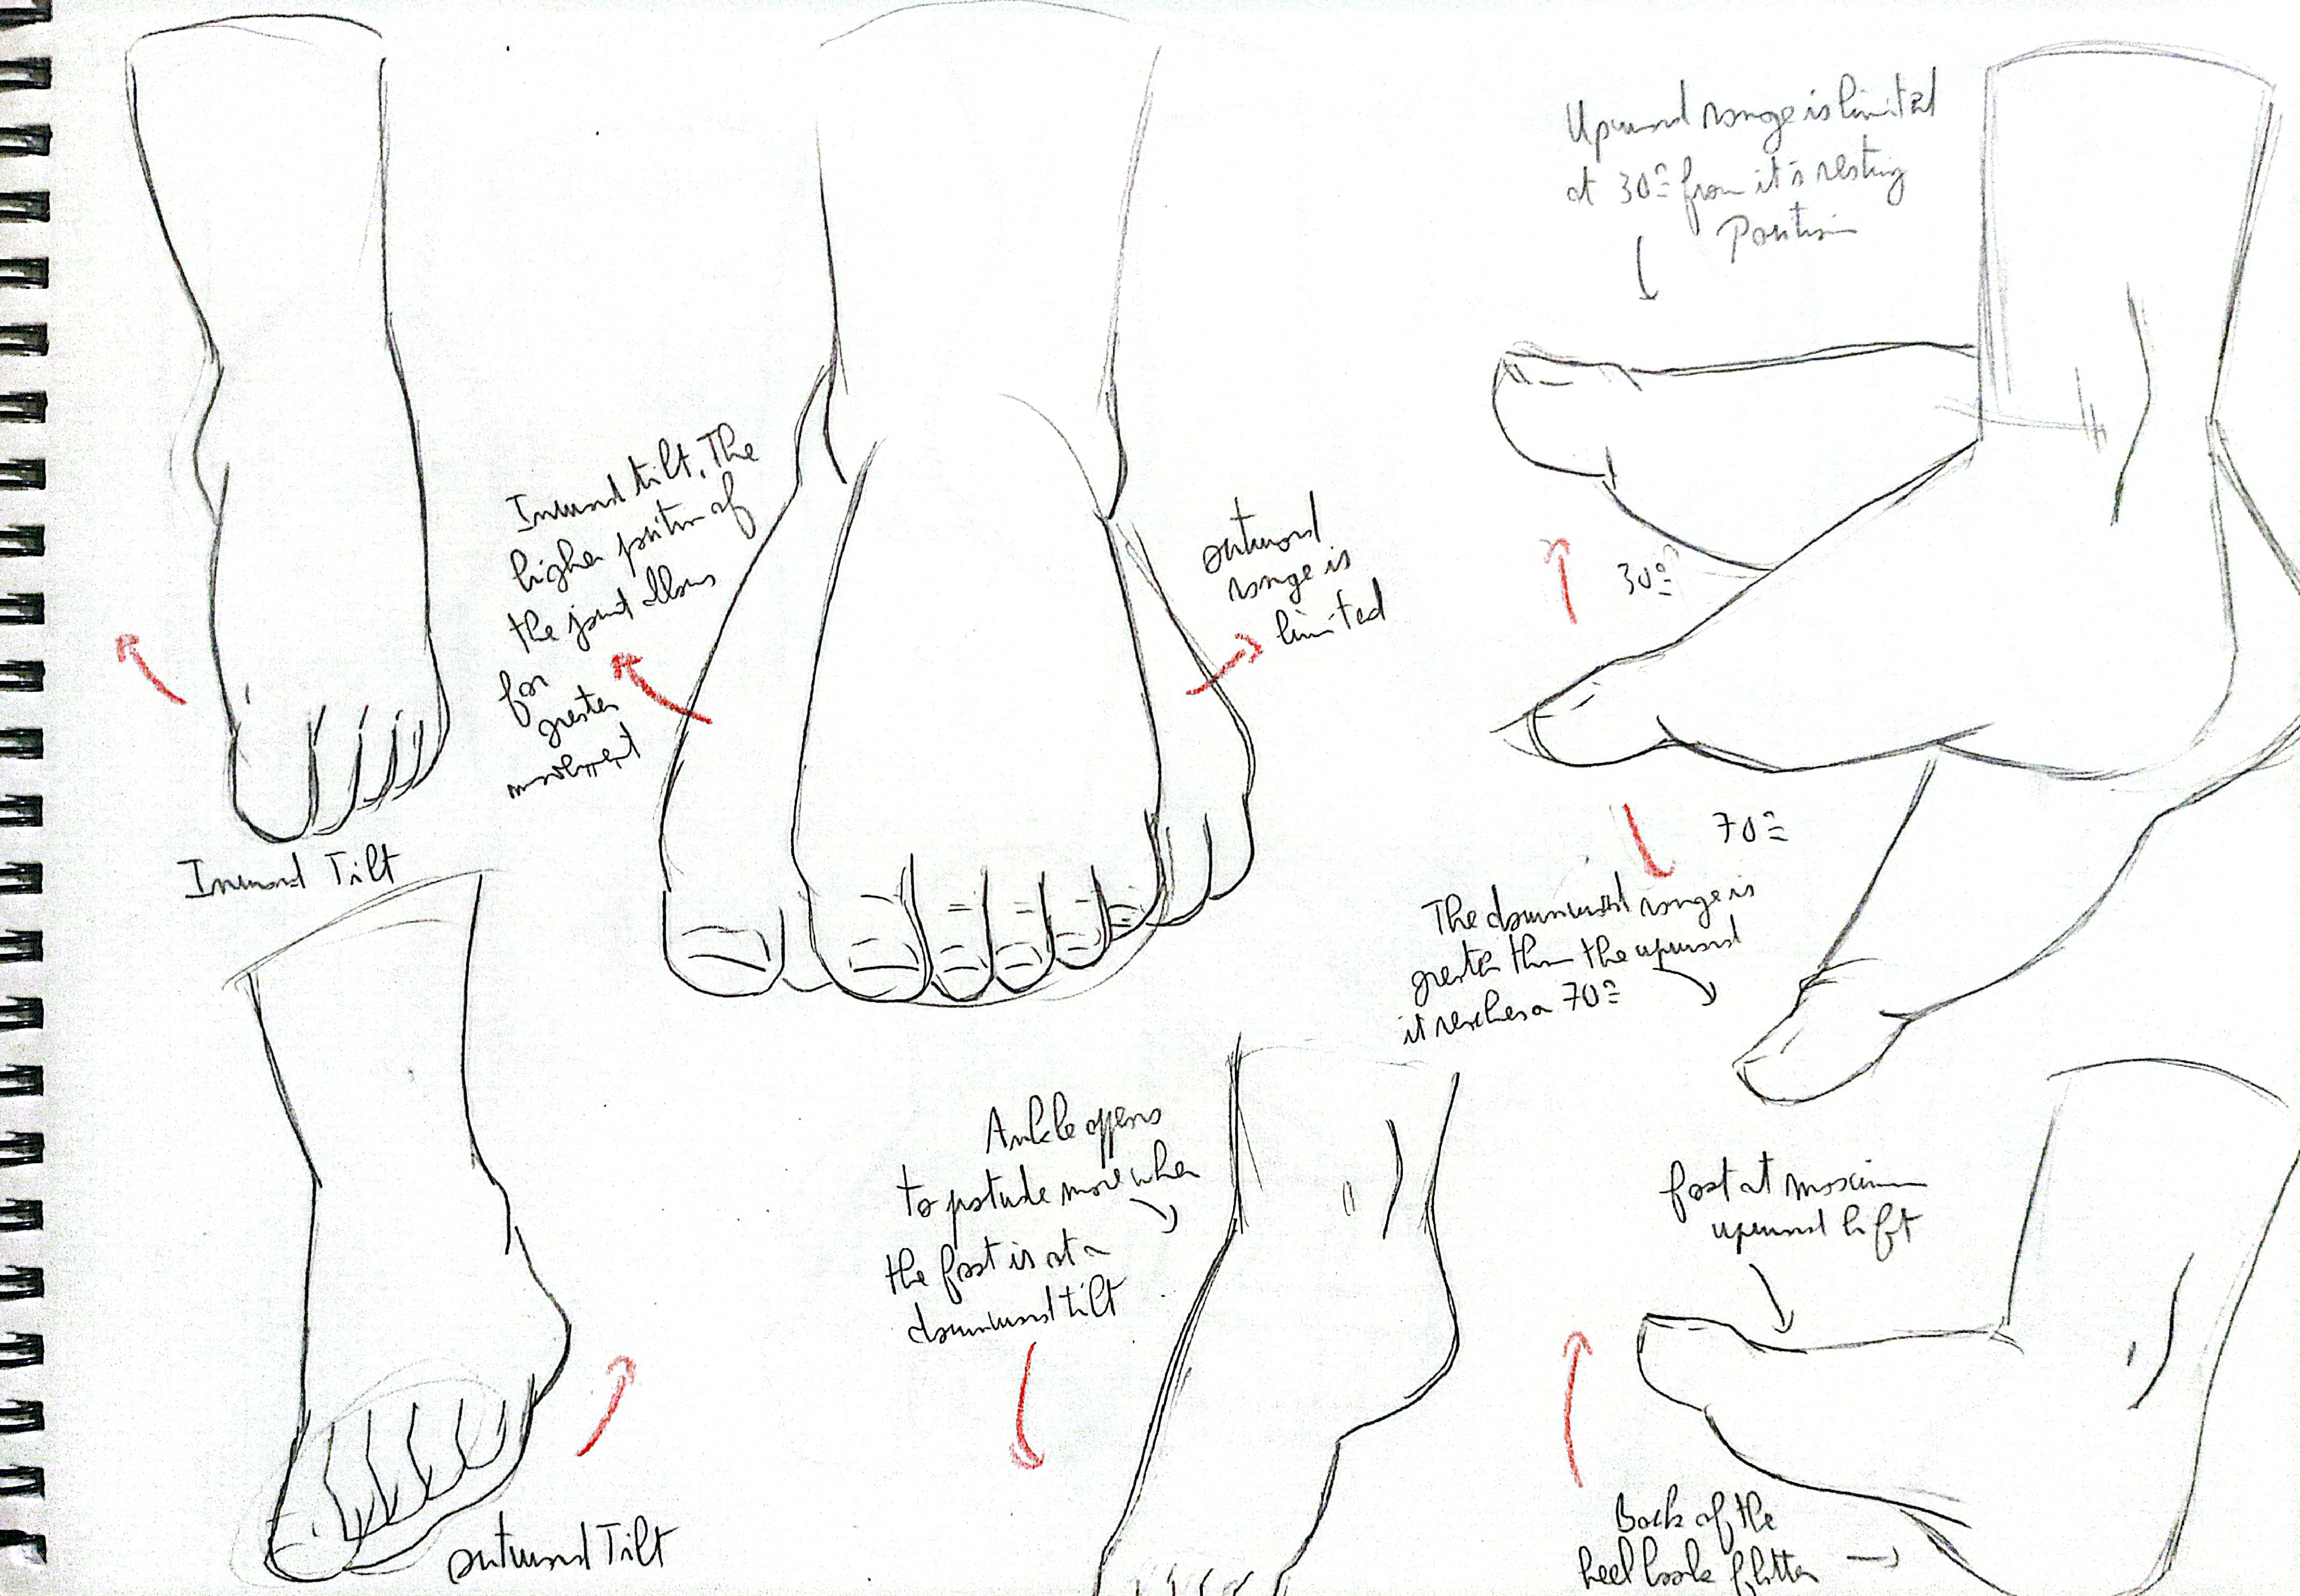 Upward range is limited
at 30º from it's resting
Position
Inward tilt. The
higher position of
the joint allows
for
greater
movement
outward
range is
limited
30º
70º
Inward Tilt
The downward range is
greater than the upward
it reaches a 70º
Ankle appears
to potude more when
the foot is at a
downward tilt
foot at maximum
upward lift
outward Tilt
Back of the
heel looks flatter